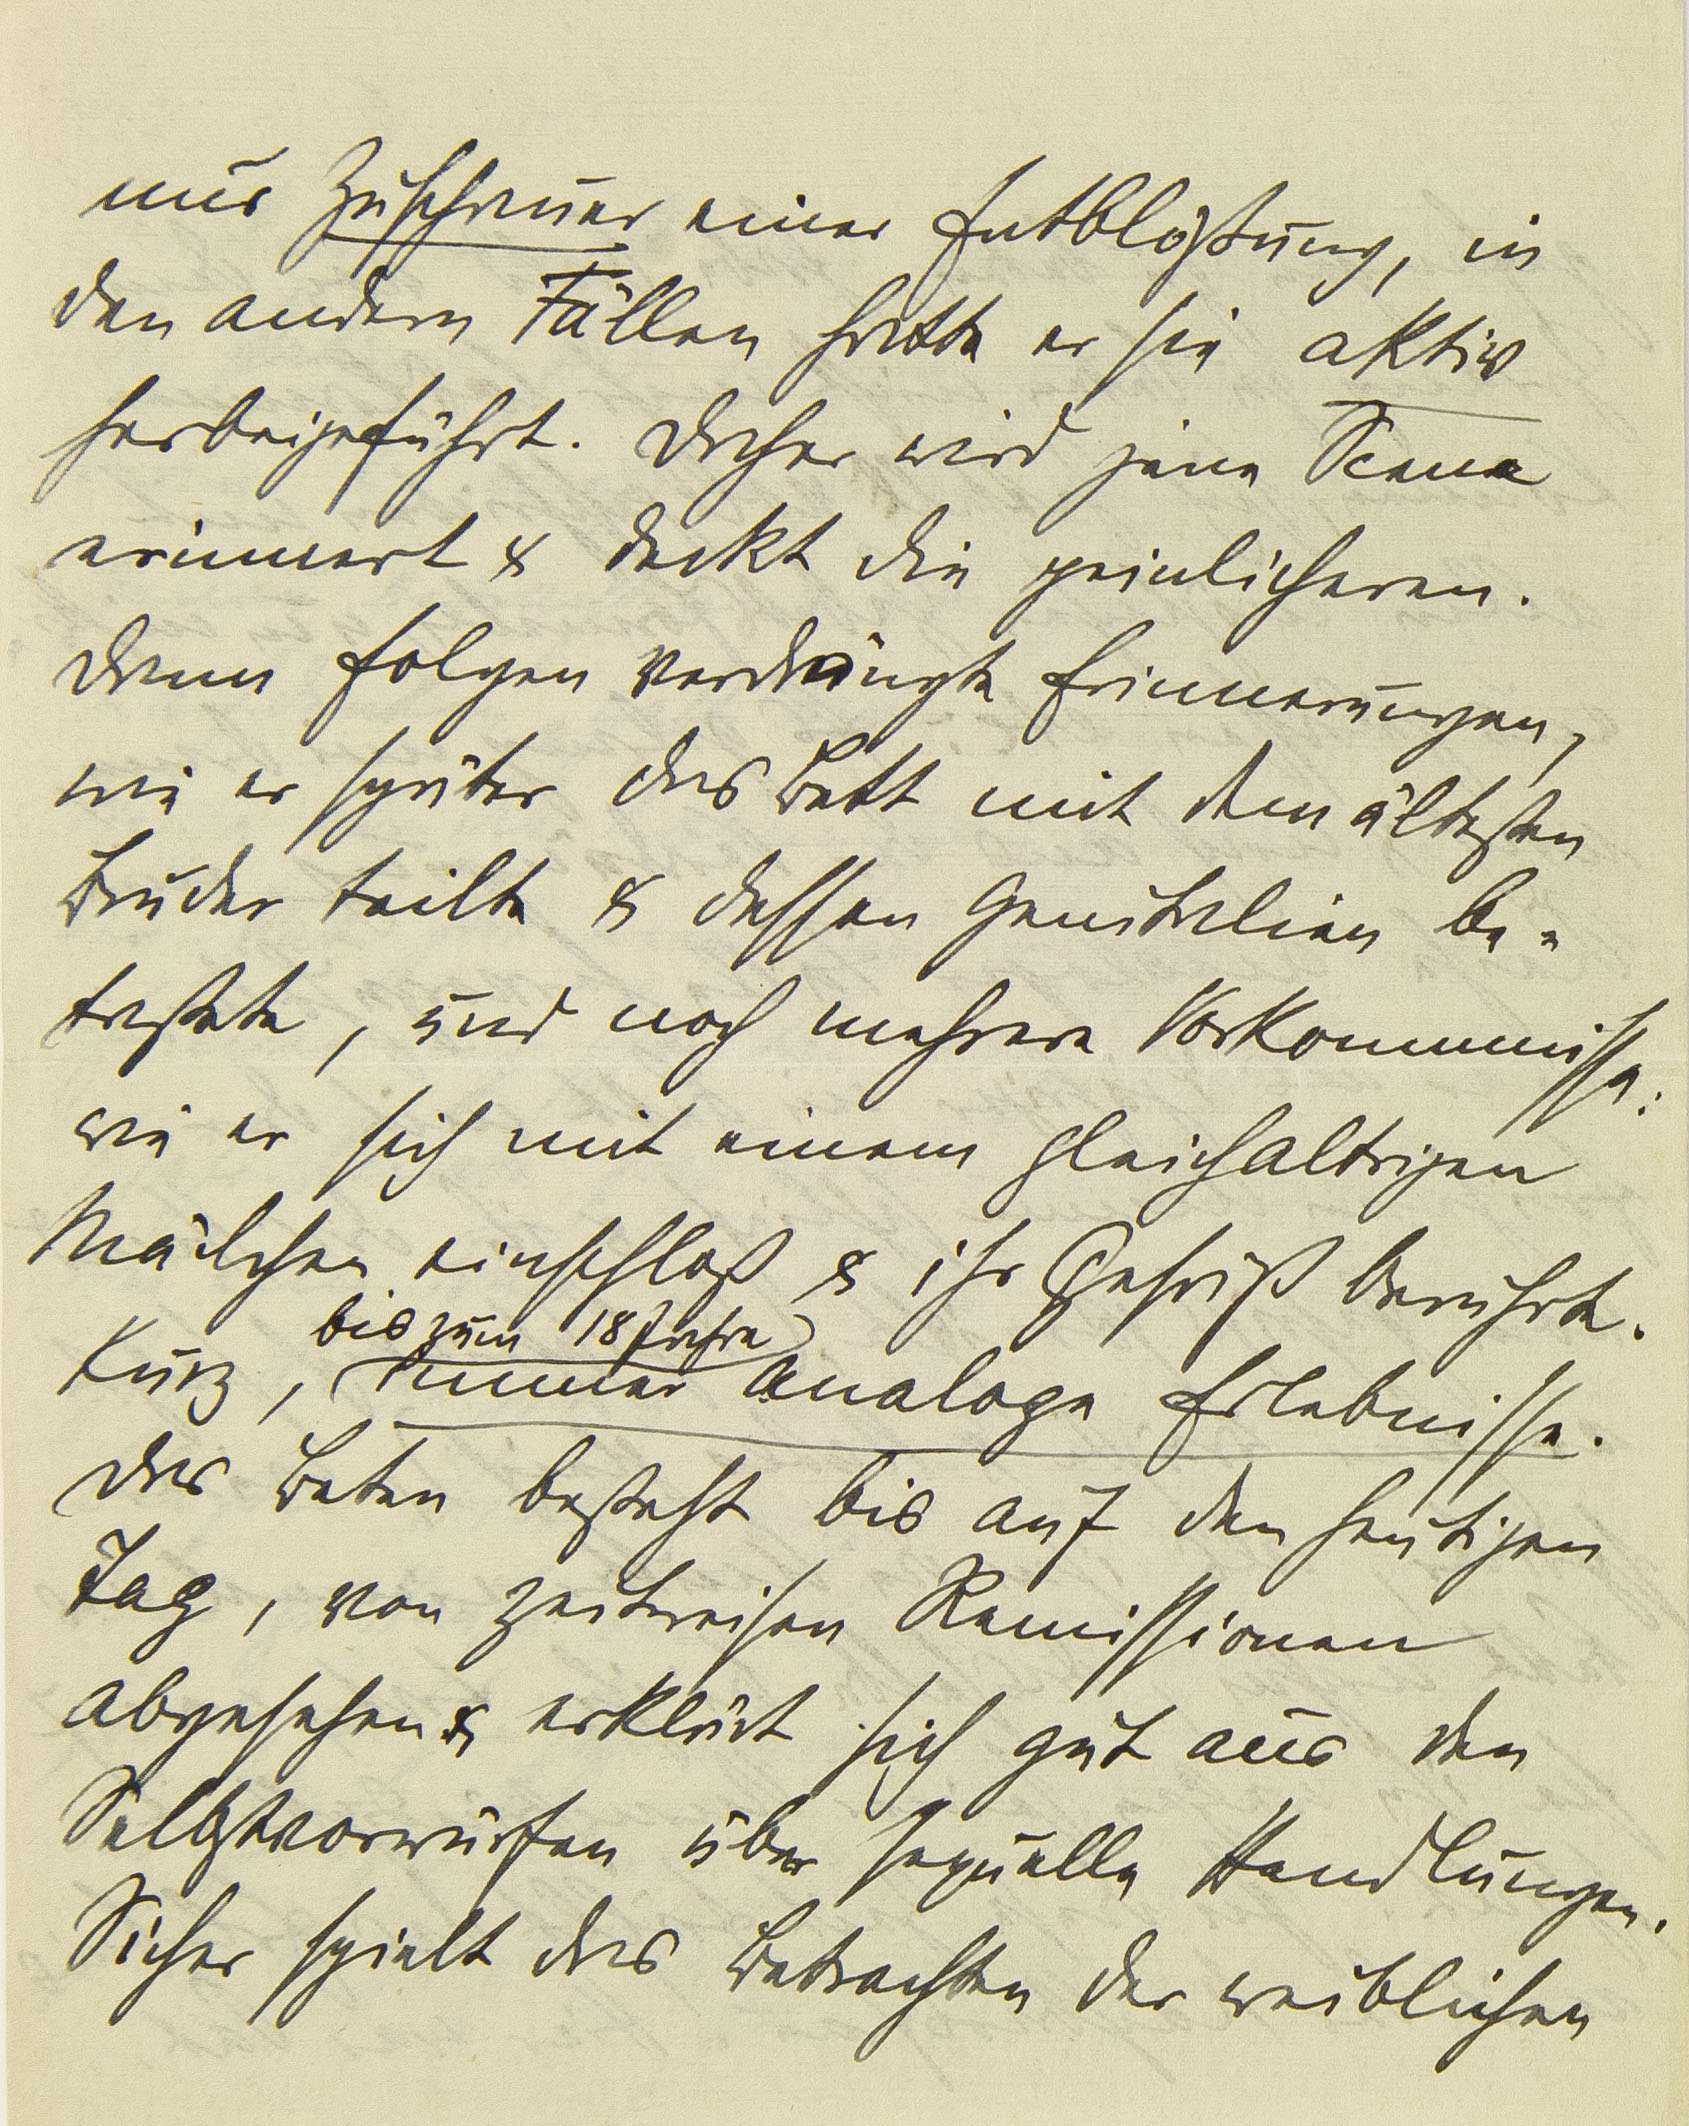 nur Zuschauer einer Entblößung, in
den andern Fällen hatte er sie aktiv
herbeigeführt. Daher wird jene Scene
erinnert & deckt die peinlicheren.
Dann folgen verdrängte Erinnerungen,
wie er später das Bett mit dem ältesten
Bruder teilte & dessen Genitalien be-
tastete, und noch mehrere Vorkommnisse:
wie er sich mit einem gleichaltrigen
Mädchen einschloß & ihr Gesäß berührte.
bis zum 18 Jahre
Kurz, immer analoge Erlebnisse.
Das Beten besteht bis auf den heutigen
Tag, von zeitweisen Remissionen
abgesehen & erklärt sich gut aus den
Selbstvorwürfen über sexuelle Handlungen.
Sicher spielt das Betrachten der weiblichen